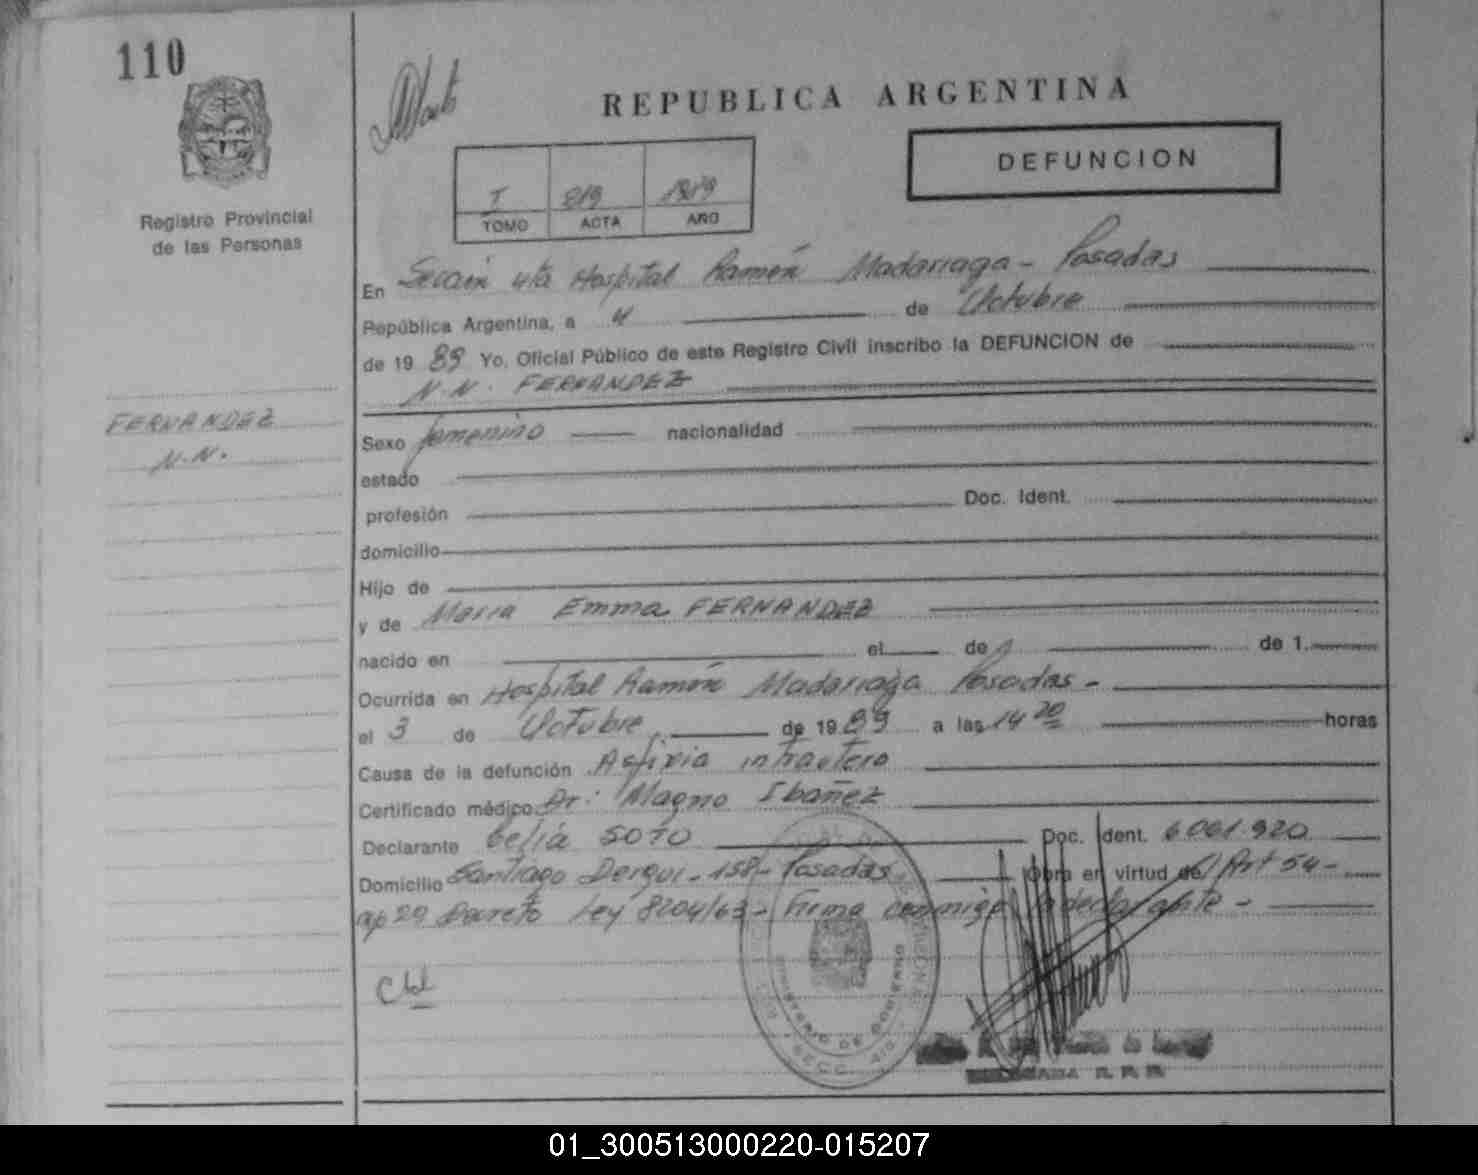 110
REPUBLICA ARGENTINA
DEFUNCION
T 819
TOMO ACTA AÑO
Registro Provincial
de las Personas
En Sección 4ta Hospital Ramón Madariaga - Posadas
República Argentina, a 4 de Octubre
de 19 89 Yo, Oficial Público de este Registro Civil inscribo la DEFUNCION de
N.N. FERNANDEZ
FERNANDEZ
N.N.
Sexo femenino nacionalidad
estado
profesión Doc. Ident.
domicilio
Hijo de
y de Maria Emma FERNANDEZ
nacido en el de de 1.
Ocurrida en Hospital Ramón Madariaga Posadas -
el 3 de Octubre de 19 89 a las 14 20 horas
Causa de la defunción Asfixia intrautero
Certificado médico Dr: Magno Ibañez
Declarante Celia SOTO Doc. Ident. 6.061.920
Domicilio Santiago Derqui - 158 - Posadas Obra en virtud de Art 54 -
ap 2º Decreto Ley 8204/63 - Firma conmigo la declarante -
MINISTERIO DE GOBIERNO
SECC. 4ta
01_300513000220-015207